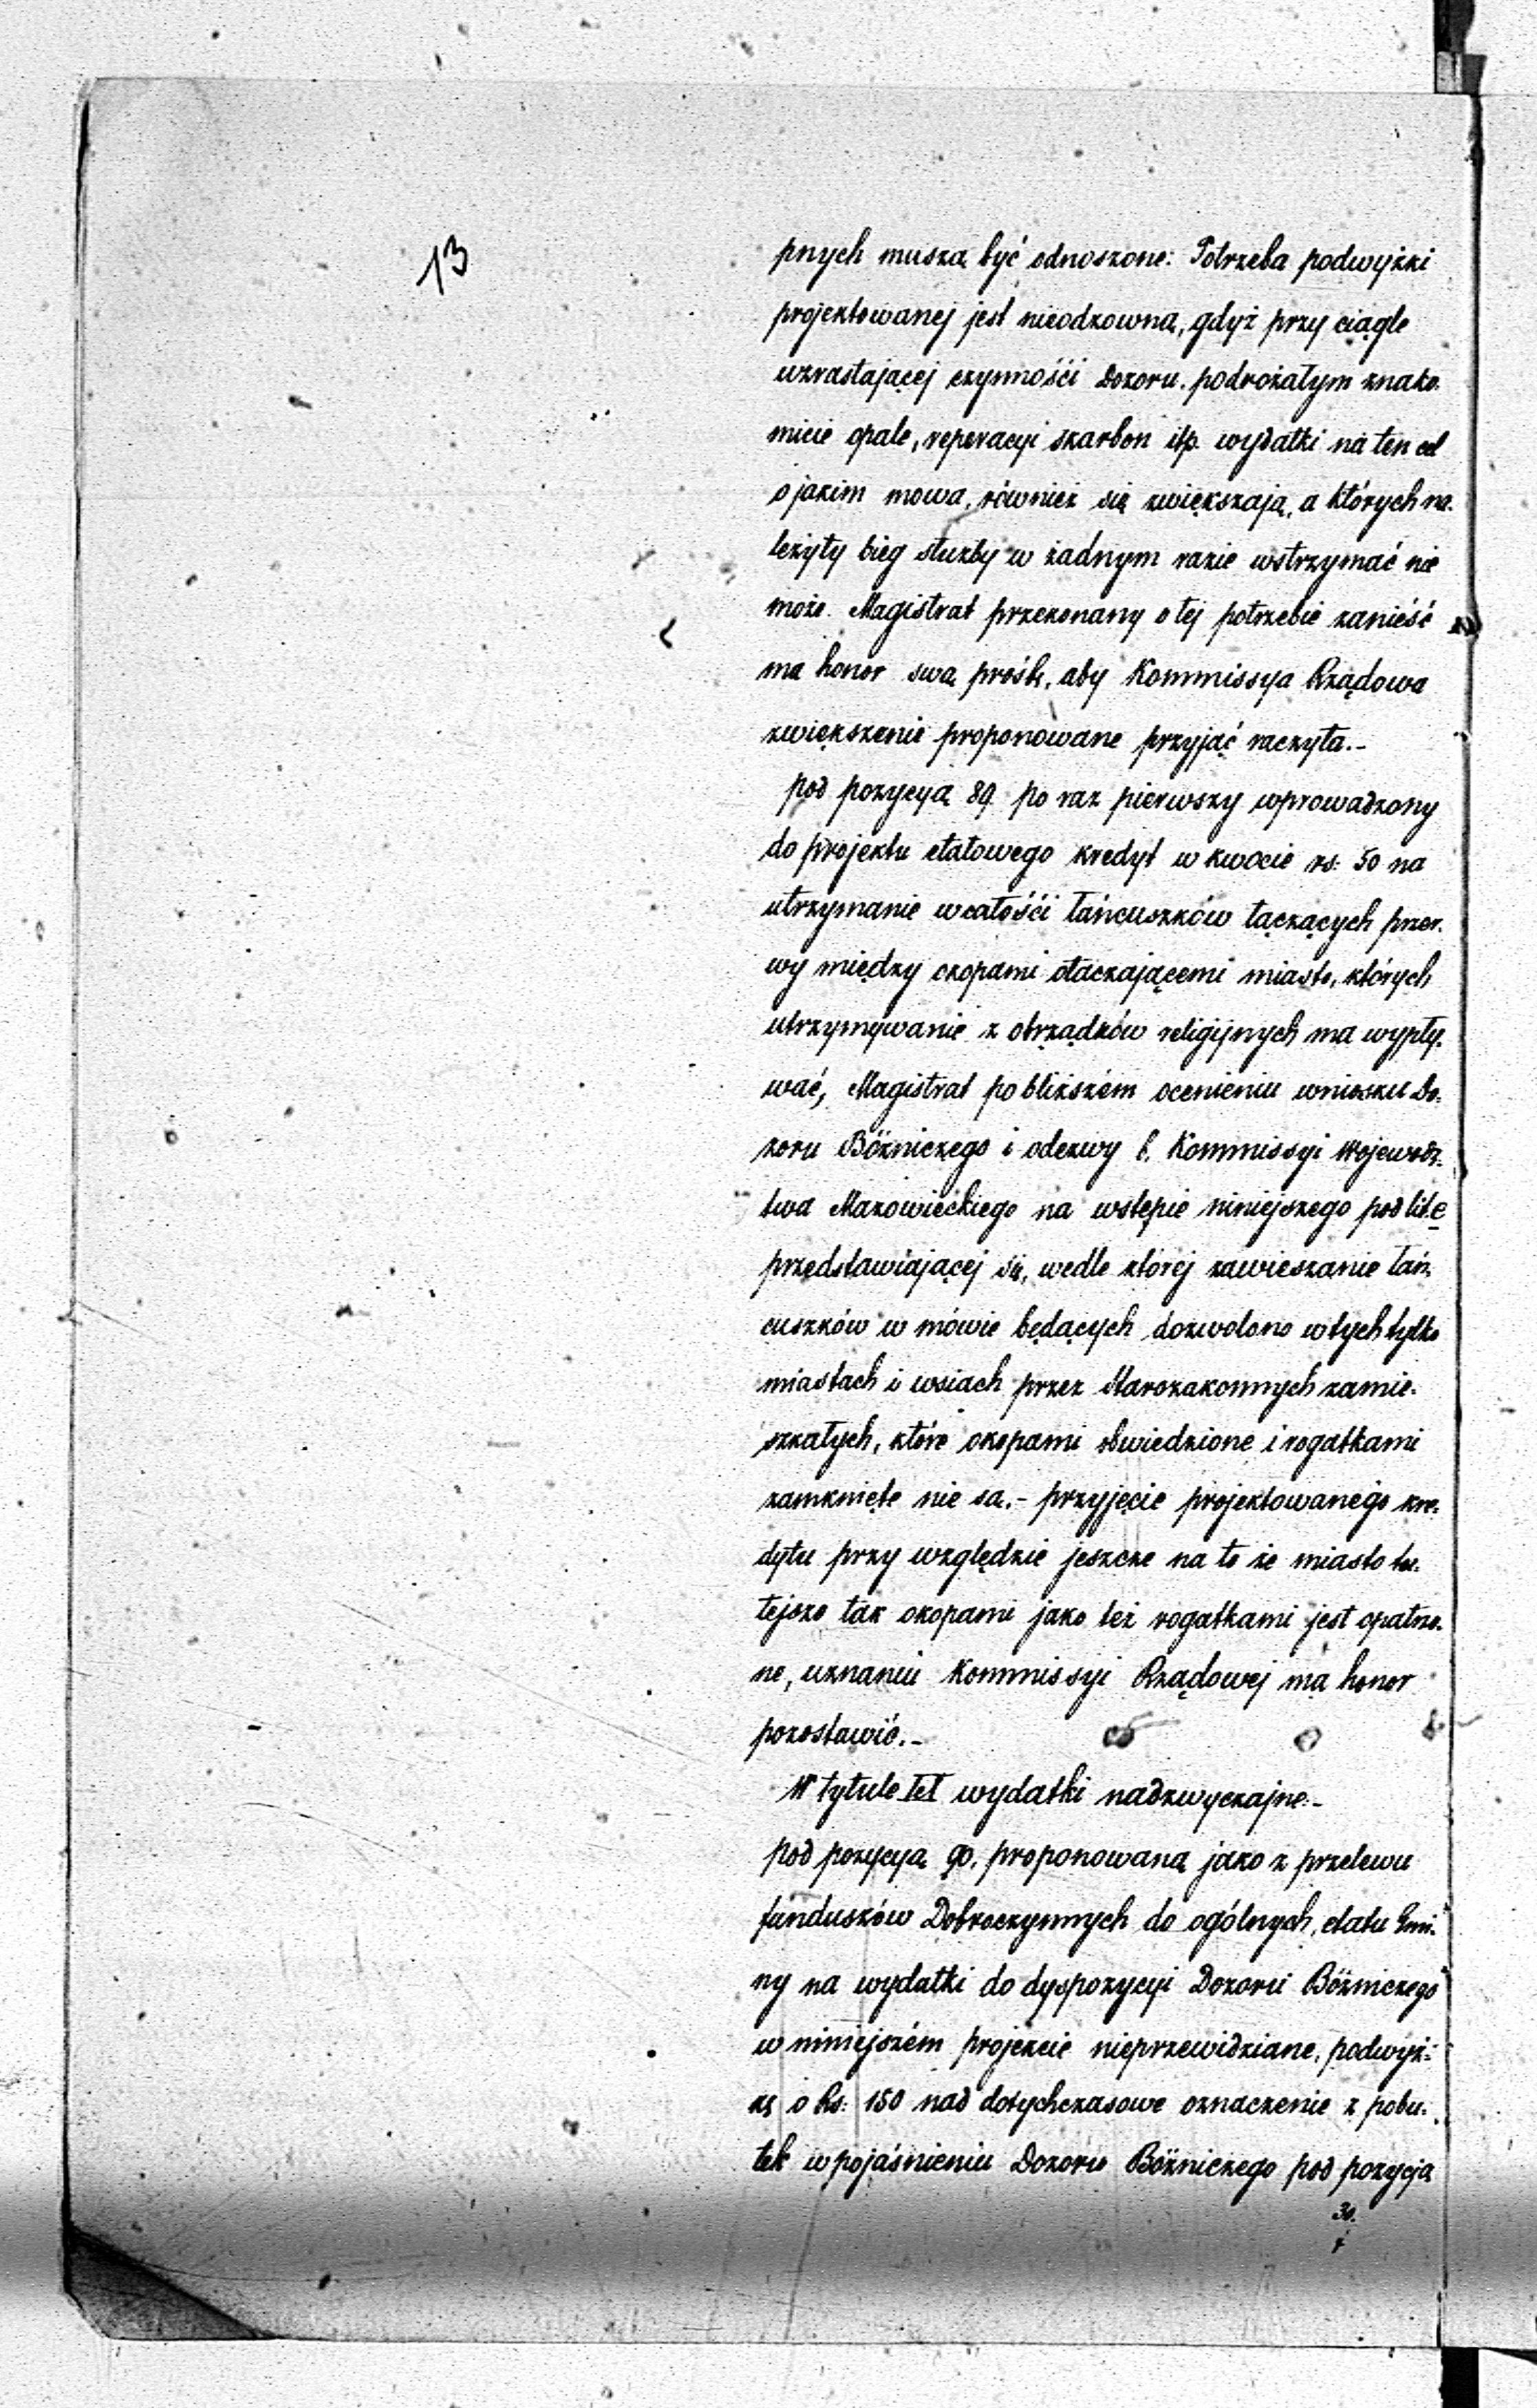 13
pnych muszą być odnoszone: Potrzeba podwyżki
projektowanej jest nieodzowną, gdyż przy ciągle
wzrastającej czynnośći Dozoru. podrożałym znako-
micie opale, reperacyi skarbon itp. wydatki na ten cel
o jakim mowa, również się zwiększają, a których na-
leżyty bieg służby w żadnym razie wstrzymać nie
może. Magistrat przekonany o tej potrzebie zanieść
ma honor swą prośbę, aby Kommissya Rządowa
zwiększenie proponowane przyjąć raczyła.-
Pod pozycyą 89 po raz pierwszy wprowadzony
do projektu etatowego kredyt w kwocie rs: 50 na
utrzymanie w całośći łańcuszków łączących przer-
wy między okopami otaczającemi miasto, których
utrzymywanie z obrządków religijnych ma wypły-
wać, Magistrat po bliższém ocenieniu wniosku Do-
zoru Bóżniczego i odezwy b. Kommissyi Wojewodz-
twa Mazowieckiego na wstępie niniejszego pod lit. e
przedstawiającej się, wedle której zawieszanie łań-
cuszków w mówie będących dozwolono w tych tylko
miastach i wsiach przez Starozakonnych zamie-
szkałych, które okopami obwiedzione i rogatkami
zamknięte nie są.- przyjęcie projektowanego kre-
dytu przy względzie jeszcze na to że miasto tu-
tejsze tak okopami jako też rogatkami jest opatrzo-
ne, uznaniu Kommissyi Rządowej ma honor
pozostawić.-
W tytule wydatki nadzwyczajne.-
Pod pozycyą 90. proponowaną jako z przelewu
funduszów Dobroczynnych do ogólnych, etatu Gmi-
ny na wydatki do dyspozycyi Dozoru Bóżniczego
w niniejszém projekcie nieprzewidziane, podwyż-
kę o Rs: 150 nad dotychczasowe oznaczenie z pobu-
dek w pojaśnieniu Dozoru Bóżniczego pod pozycją
30.